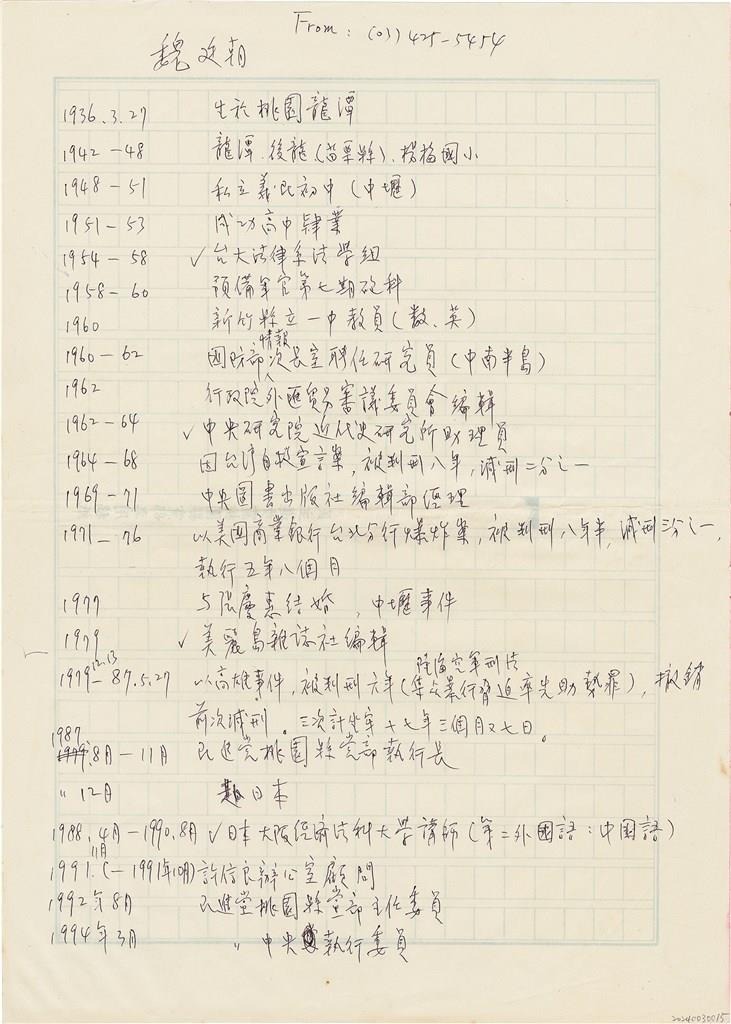 From: (03) 425-5454
魏廷朝
1936.3.27 生於桃園龍潭
1942-48 龍潭、後龍(苗栗縣)、楊梅國小
1948-51 私立義民初中(中壢)
1951-53 成功高中肄業
1954-58 ✓台大法律系法學組
1958-60 預備軍官第七期政科
1960 新竹縣立一中教員(數、英)
情報
1960-62 國防部次長室聘任研究員(中南半島)
1962 行政院外匯貿易審議委員會編輯
1962-64 ✓中央研究院近代史研究所助理員
1964-68 因台湾自救宣言案,被判刑八年,減刑二分之一
1969-71 中央圖書出版社編輯部經理
1971-76 以美國商業銀行台北分行爆炸案,被判刑八年半,減刑三分之一,
執行五年八個月
1977 与張慶惠結婚,中壢事件
1979 ✓美麗島雜誌社編輯
12.13 陸海空軍刑法
1979-87.5.27 以高雄事件,被判刑六年(集众暴行脅迫率先助勢罪),撤銷
前次減刑。三次計坐牢十七年三個月又七日。
1987
1979.8月-11月 民進党桃園縣党部執行長
〃 12月 赴日本
1988.4月-1990.8月 ✓日本大阪經濟法科大學講師(第二外國語:中国語)
11月
1991.(-1991年10月) 許信良辦公室顧問
1992年8月 民進党桃園縣黨部主任委員
1994年3月 〃 中央執行委員
20240030015